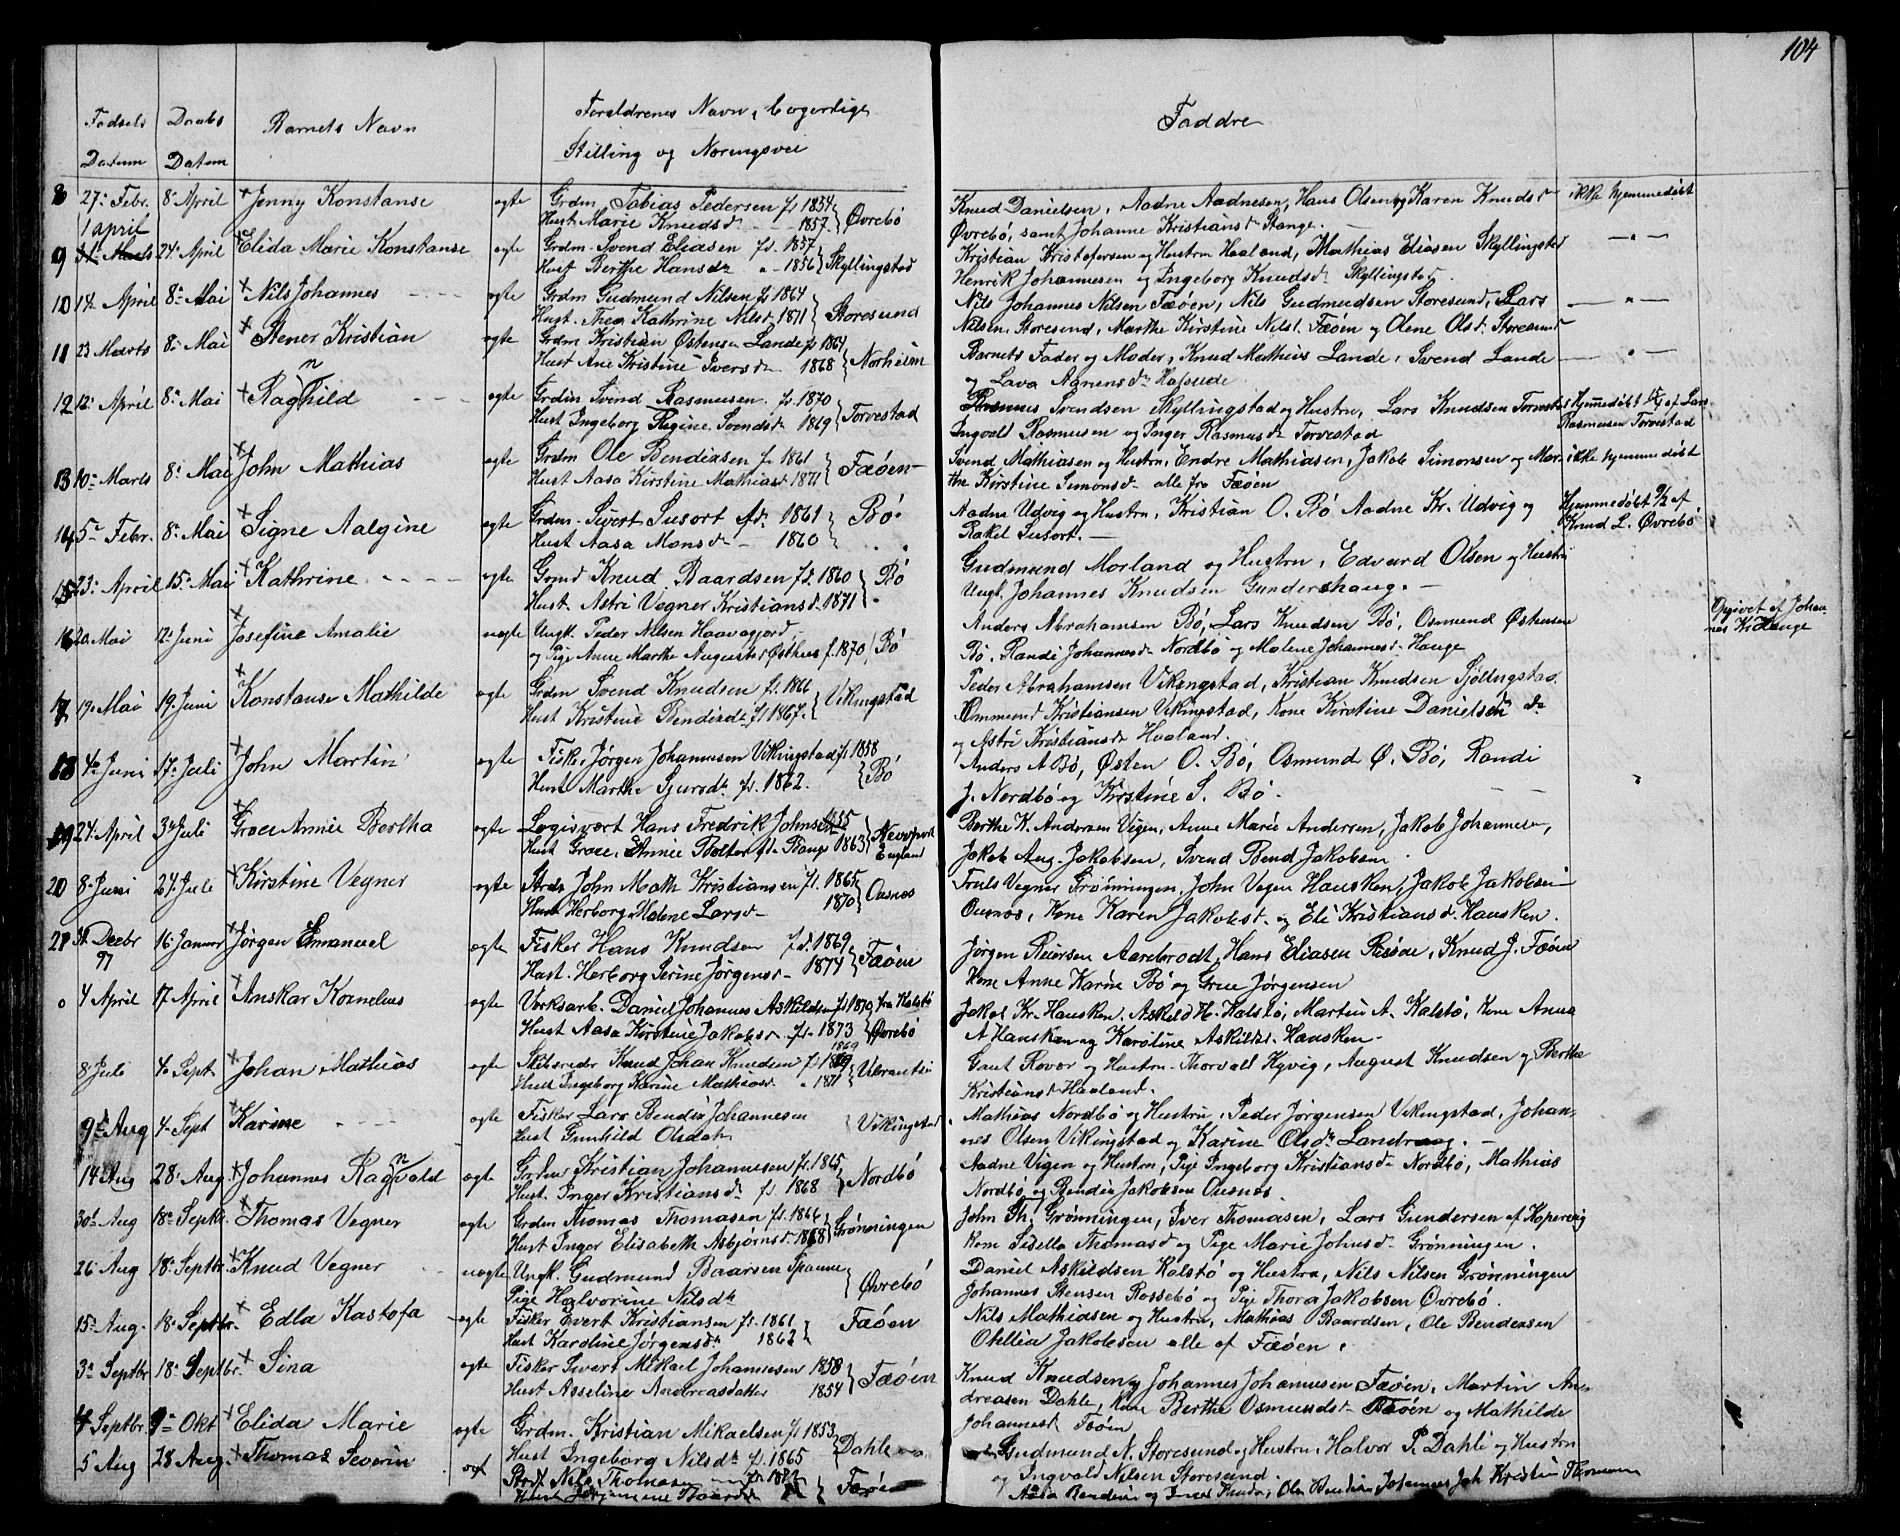 104
Fødsels Daabs Barnets Navn Forældrenes Navn, borgerlige Faddre
Datum Datum Stilling og Næringsvei
8 27. Febr. 8. April Jenny Konstanse ægte Grdm. Tobias Pedersen f. 1854 Øvrebø
Hust. Marie Knudsd. 1857
Knud Danielsen, Aadne Aadnesen, Hans Olsen og Karen Knudsd. ikke hjemmedøbt
Øvrebø, samt Johanne Kristiansd. Stange.
9 1 april 24. April Elida Marie Konstanse ægte Grdm. Svend Eliasen f. 1857 Skyllingstad
Hust. Berthe Hansdr. 1856
Kristian Kristofersen og Hustru Haaland, Mathias Eliasen Skyllingstad
Henrik Johannesen og Ingeborg Knudsdr. Skyllingstad.
10 14. April 8. Mai Nils Johannes ægte Grdm Gudmund Nilsen f. 1864 Storesund
Hust. Thea Kathrine Nilsd. 1871
Nils Johannes Nilsen Fæøen, Nils Gudmudsen Storesund, Lars
Nilsen, Storesund, Marthe Kirstine Nilsd. Fæøen og Olene Olsd. Storesund
11 23 Marts 8. Mai Stener Kristian ægte Grdm Kristian Østensen Lande f. 1864 Norheim
Hust Ane Kristine Iversdr. 1868
Barnets Fader og Moder, Knud Mathias Lande, Svend Lande
og Lava
12 12. April 8. Mai Ragnhild ægte Grdm Svend Rasmusen f. 1870 Torvestad
Hust Ingeborg Regine Svendsd. 1869
Rasmus Svendsen Skyllingstad og Hustru, Lars Knudsen Torvestad Hjemmedøbt af Lars
Ingvald Rasmusen og Inger Rasmusdr. Torvestad Rasmusen Torvestad
13 10. Marts 8. Mai John Mathias ægte Grdm Ole Bendixsen f. 1861 Fæøen
Hust Aasa Kirstine Mathiasd. 1871
Svend Mathiasen og Hustru, Endre Mathiasen, Jakob Simonsen og Mar- ikke hjemmedøbt
the Kirstine Simonsdr. alle fra Fæøen
14 5. Febr. 8. Mai Signe Aalgine ægte Grdm. Sivert Susort fd. 1861 Bø.
Hust Aasa Monsdr. 1860
Aadne Udvig og Hustru, Kristian O. Bø Aadne Kr. Udvig og Hjemmedøbt af
Rakel Susort. Knud L. Øvrebø
15 23. April 15. Mai Kathrine ægte Grmd Knud Baardsen f. 1860 Bø
Hust. Astri Vegner Kristiansd. 1871
Gudmund Morland og Hustru, Edvard Olsen og Hustru
Ungk. Johannes Knudsen Gundershaug.
16 20. Mai 12. Juni Josefine Amalie uægte Ungk. Peder Nilsen Haavagjord, Bø
og Pige Anne Marthe f. 1870
Anders Abrahamsen Bø, Lars Knudsen Bø, Osmund Østensen Opgivet af Johan-
Bø, Randi Johannesdr. Nordbø og Malene Johannesdr. Hauge nes K. Hauge
17 19. Mai 19. Juni Konstanse Mathilde ægte Grdm Svend Knudsen f. 1866 Vikingstad
Hust Kristine Bendixdr. f. 1867.
Peder Abrahamsen Vikingstad, Kristian Knudsen
Ommund Kristiansen Vikingstad, Kone Kirstine Danielsdr.
og Astri Kristiansdr. Haaland.
18 4. Juni 17. Juli John Martin ægte Fisker Jørgen Johannesen Vikingstad f. 1858 Bø
Hust Marthe Sjursdr. f. 1862.
Anders A Bø, Østen O. Bø, Osmund Ø. Bø, Randi
J. Nordbø og Kirstine S. Bø.
19 24 April 3 Juli Grace Annie Bertha ægte Hans Fredrik Johnsen 1855
Hust Grace, Annie 1863 England
Berthe K. Andersen Vigen, Anne Marie Andersen, Jakob Johannesen,
Jakob Aug. Jakobsen, Svend Bend. Jakobsen.
20 8. Juni 24. Juli Kirstine Vegner ægte Strds John Math. Kristiansen f. 1865 Ousnes
Hust Herborg Malene Larsd. 1870
Truls Vegner Grønningen, John Vegner Hausken, Jakob Jakobsen
Ousnes, Kone Karen Jakobsd. og Eli Kristiansd. Hausken.
21 Decbr 97 16 Januar Jørgen Emanuel ægte Fisker Hans Knudsen f. 1869 Fæøen
Hust. Herborg Serine Jørgensd. 1874
Jørgen Reiersen Hans Eliasen Risøen, Knud J. Fæøen
Kone Anne Karine Bø og Jørgensen
4 April 17 April Anskar Kornelius ægte Værksarb. Daniel Johannes Askildsen f. 1870 fra Kalstø
Hust Aasa Kirstine Jakobsd. f. 1873 Øvrebø
Jakob Kr. Hausken, Askild H. Kalstø, Martin A. Kalstø, Kone Anna
A Hausken og Karoline Askildsd. Hausken.
8 Juli 4. Sept Johan Mathias ægte Skibsreder Knud Johan Knudsen f. 1869
Hust Ingeborg Karine Mathiasd. 1871
Gaut Rovor og Hustru, Thorvald August Knudsen og Berthe
Kristiansd. Haaland.
9. Aug 4. Sept Karine ægte Fisker Lars Bendix Johannesen Vikingstad
Hust Gunhild Olsdatr.
Mathias Nordbø og Hustru, Peder Jørgensen Vikingstad, Johan-
nes Olsen Vikingstad og Karine Olsdr.
14 Aug 28. Aug. Johannes Ragnvald ægte Grdm Kristian Johannesen f. 1865 Nordbø
Hust. Inger Kristiansdr. f. 1868
Aadne Vigen og Hustru, Pige Ingeborg Kristiansdr. Nordbø, Mathias
Nordbø og Bendix Jakobsen Ousnes.
30. Aug 18. Septbr. Thomas Vegner ægte Grdm Thomas Thomasen f. 1866 Grønningen
Hust Inger Elisabeth Asbjørnsd. 1868
John Th. Grønningen, Iver Thomasen, Lars Gundersen af Kopervig
Kone Sidella Thomasd. og Pige Marie Johnsd. Grønningen.
26 Aug 18. Septbr. Knud Vegner uægte Ungk. Gudmund Baarsen Spanne Øvrebø
Pige Halvorine Nilsdr.
Daniel Askildsen Kalstø og Hustru, Nils Nilsen Grønningen
Johannes Stensen Rossebø og Pige Thora Jakobsen Øvrebø.
15. Aug. 18. Septbr. Edla Kastofa ægte Fisker Evert Kristiansen f. 1861 Fæøen
Hust Karoline Jørgensdr. 1862
Nils Mathiasen og Hustru, Mathias Baardsen, Ole Bendixsen
Othilia Jakobsen alle af Fæøen.
3. Septbr 18. Septbr. Sina ægte Fisker Sivert Mikael Johannesen 1858 Fæøen
Hust Asseline Andreasdatter 1854
Knud Knudsen og Johannes Johannesen Fæøen, Martin An-
dreasen Dahle, Kone Berthe Osmundsd. Fæøen og Mathilde
Johannesd. Fæøen
4 Septbr. 9. Okt Elida Marie ægte Grdm. Kristian Mikaelsen f. 1853 Dahle
Hust Ingeborg Nilsdr. f. 1865
Gudmund N. Storesund og Hustru, Halvor P. Dahle og Hustru
og Ingvald Nilsen Storesund.
5 Aug 28 Aug. Thomas Severin ægt Nils Thomasen Fæøen
Hust Baardsd.
Aasa Bendixen og Ole Bendixen, Johannes Joh Kristian Thomasen